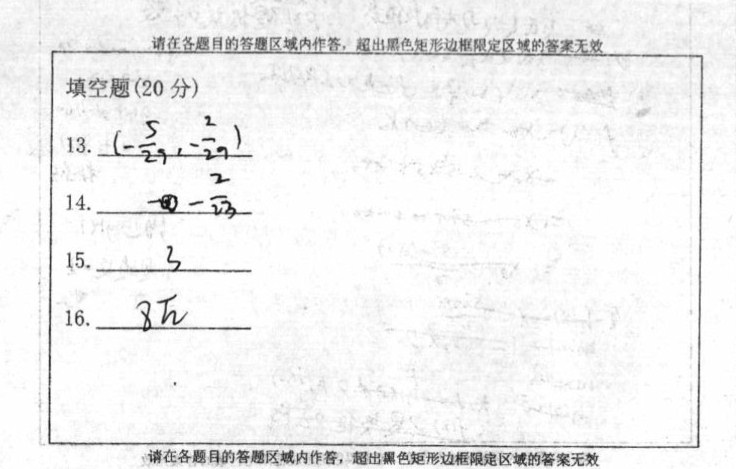 请在各题目的答题区域内作答，超出黑色矩形边框限定区域的答案无效
填空题(20 分)
13. (-5/29, -2/29)
14. -2/23
15. 3
16. 8√2
请在各题目的答题区域内作答，超出黑色矩形边框限定区域的答案无效